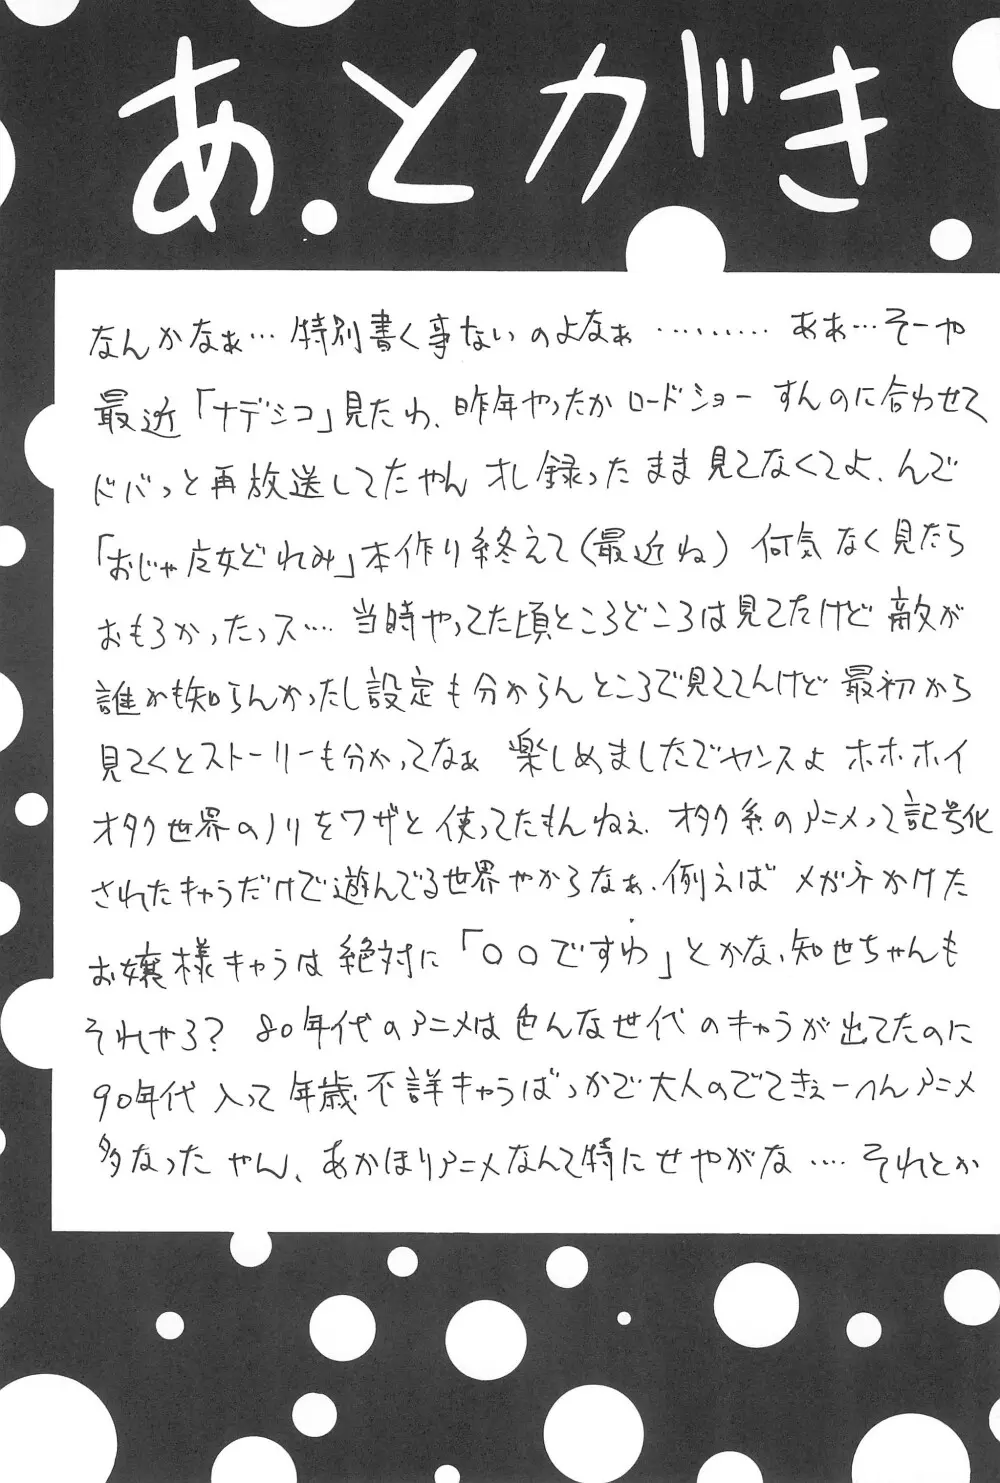 あとがき
なんかなぁ…特別書く事ないのよなぁ………ああ…そーや
最近「ナデシコ」見たわ、昨年やったかロードショーすんのに合わせて
ドバっと再放送してたやんオレ録ったまま見てなくてよ、んで
「おじゃ魔女どれみ」本作り終えて(最近ね)何気なく見たら
おもろかったっス…当時やってた頃ところどころは見てたけど敵が
誰かも知らんかったし設定も分からんところで見ててんけど最初から
見てくとストーリーも分かってなぁ楽しめましたでヤンスよホホホイ
オタク世界のノリをワザと使ってたもんねぇ、オタク系のアニメって記号化
されたキャラだけで遊んでる世界やからなぁ、例えばメガネかけた
お嬢様キャラは絶対に「〇〇ですわ」とかな、知世ちゃんも
それやろ?80年代のアニメは色んな世代のキャラが出てたのに
90年代入って年歳不詳キャラばっかで大人のでてきぇーへんアニメ
多なったやん、あかほりアニメなんて特にせやがな…それとか